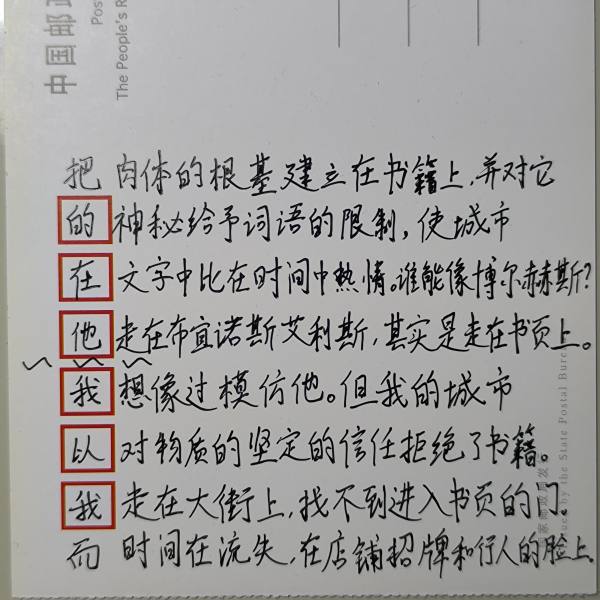 中国邮政
Pos
The People's R
把肉体的根基建立在书籍上,并对它
的神秘给予词语的限制,使城市
在文字中比在时间中热情。谁能像博尔赫斯?
他走在布宜诺斯艾利斯,其实是走在书页上。
我想像过模仿他。但我的城市
以对物质的坚定的信任拒绝了书籍。
我走在大街上,找不到进入书页的门。
而时间在流失,在店铺招牌和行人的脸上。
国家邮政局发
ued by the State Postal Bure